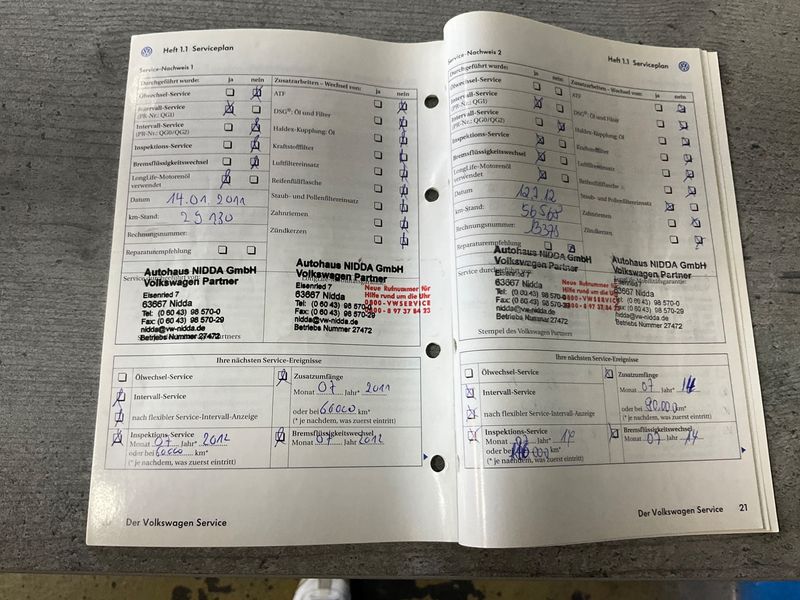 Heft 1.1 Serviceplan
Service-Nachweis 1
Durchgeführt wurde: ja nein
Ölwechsel-Service
Intervall-Service
(PR-Nr.: QG1)
Intervall-Service
(PR-Nr.: QG0/QG2)
Inspektions-Service
Bremsflüssigkeitswechsel
LongLife-Motorenöl
verwendet
Datum 14.01.2011
km-Stand: 29 130
Rechnungsnummer:
Reparaturempfehlung
Zusatzarbeiten – Wechsel von: ja nein
ATF
DSG®: Öl und Filter
Haldex-Kupplung: Öl
Kraftstofffilter
Luftfiltereinsatz
Reifenfüllflasche
Staub- und Pollenfiltereinsatz
Zahnriemen
Zündkerzen
Service durchgeführt von:
Autohaus NIDDA GmbH
Volkswagen Partner
Eisenried 7
63667 Nidda
Tel: (0 60 43) 98 570-0
Fax: (0 60 43) 98 570-29
nidda@vw-nidda.de
Betriebs Nummer 27472
Autohaus NIDDA GmbH
Volkswagen Partner
Eisenried 7
63667 Nidda
Tel: (0 60 43) 98 570-0
Fax: (0 60 43) 98 570-29
nidda@vw-nidda.de
Betriebs Nummer 27472
Neue Rufnummer für
Hilfe rund um die Uhr
0800 - VWSERVICE
0800 - 8 97 37 84 23
Ihre nächsten Service-Ereignisse
Ölwechsel-Service
Intervall-Service
nach flexibler Service-Intervall-Anzeige
Inspektions-Service
Monat 07 Jahr* 2012
oder bei 60000 km*
(* je nachdem, was zuerst eintritt)
Zusatzumfänge
Monat 07 Jahr* 2011
oder bei 60000 km*
(* je nachdem, was zuerst eintritt)
Bremsflüssigkeitswechsel
Monat 07 Jahr 2012
Der Volkswagen Service
Service-Nachweis 2
Heft 1.1 Serviceplan
Durchgeführt wurde: ja nein
Ölwechsel-Service
Intervall-Service
(PR-Nr.: QG1)
Intervall-Service
(PR-Nr.: QG0/QG2)
Inspektions-Service
Bremsflüssigkeitswechsel
LongLife-Motorenöl
verwendet
Datum
km-Stand:
Rechnungsnummer:
Reparaturempfehlung
Zusatzarbeiten – Wechsel von: ja nein
ATF
DSG®: Öl und Filter
Haldex-Kupplung: Öl
Kraftstofffilter
Luftfiltereinsatz
Reifenfüllflasche
Staub- und Pollenfiltereinsatz
Zahnriemen
Zündkerzen
Service durchgeführt von:
Autohaus NIDDA GmbH
Volkswagen Partner
Eisenried 7
63667 Nidda
Tel: (0 60 43) 98 570-0
Fax: (0 60 43) 98 570-29
nidda@vw-nidda.de
Betriebs Nummer 27472
Autohaus NIDDA GmbH
Volkswagen Partner
Eisenried 7
63667 Nidda
nidda@vw-nidda.de
Betriebs Nummer 27472
Stempel des Volkswagen Partners
Ihre nächsten Service-Ereignisse
Ölwechsel-Service
Intervall-Service
nach flexibler Service-Intervall-Anzeige
Inspektions-Service
Monat 07 Jahr* 14
oder bei km*
(* je nachdem, was zuerst eintritt)
Zusatzumfänge
Monat 07 Jahr* 14
oder bei 90000 km*
(* je nachdem, was zuerst eintritt)
Bremsflüssigkeitswechsel
Monat 07 Jahr 14
Der Volkswagen Service 21